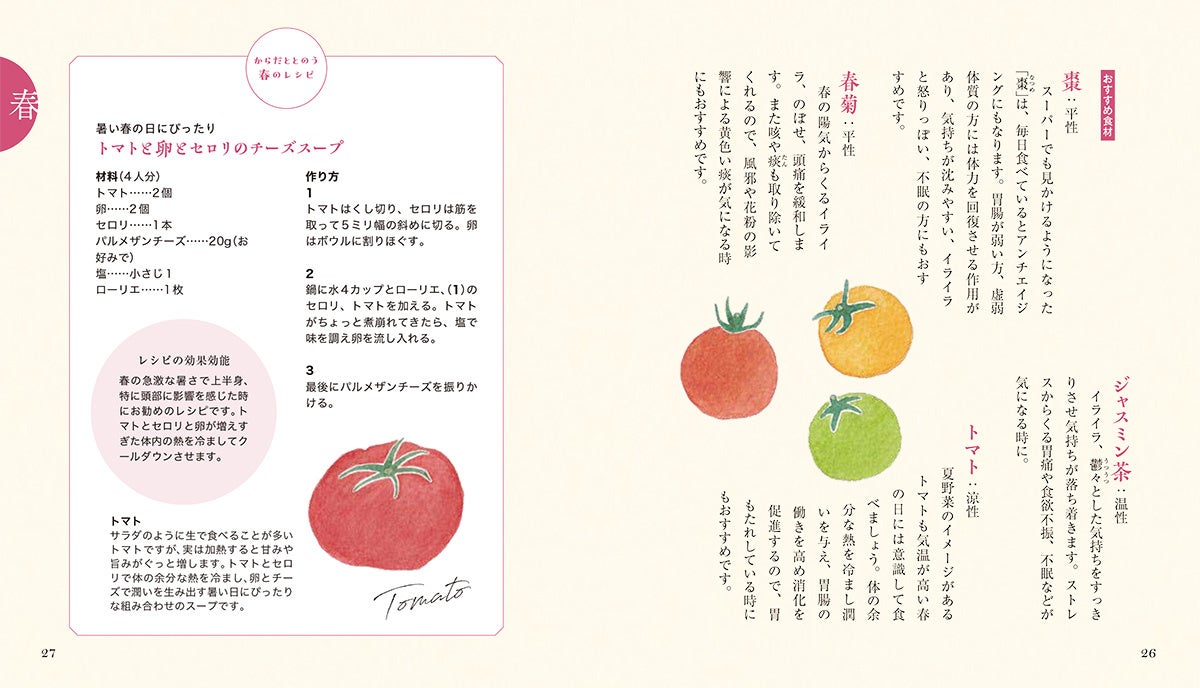 おすすめ食材
棗:平性
スーパーでも見かけるようになった
「棗」は、毎日食べているとアンチエイジ
なつめ
ングにもなります。胃腸が弱い方、虚弱
体質の方には体力を回復させる作用が
あり、気持ちが沈みやすい、イライラ
と怒りっぽい、不眠の方にもおす
すめです。
春菊:平性
春の陽気からくるイライ
ラ、のぼせ、頭痛を緩和しま
す。また咳や痰も取り除いて
たん
くれるので、風邪や花粉の影
響による黄色い痰が気になる時
にもおすすめです。
ジャスミン茶:温性
イライラ、鬱々とした気持ちをすっき
うつうつ
りさせ気持ちが落ち着きます。ストレ
スからくる胃痛や食欲不振、不眠などが
気になる時に。
トマト:涼性
夏野菜のイメージがある
トマトも気温が高い春
の日には意識して食
べましょう。体の余
分な熱を冷まし潤
いを与え、胃腸の
働きを高め消化を
促進するので、胃
もたれしている時に
もおすすめです。
26
春
からだととのう
春のレシピ
暑い春の日にぴったり
トマトと卵とセロリのチーズスープ
材料(4人分)
トマト……2個
卵……2個
セロリ……1本
パルメザンチーズ……20g(お
好みで)
塩……小さじ1
ローリエ……1枚
作り方
1
トマトはくし切り、セロリは筋を
取って5ミリ幅の斜めに切る。卵
はボウルに割りほぐす。
2
鍋に水4カップとローリエ、(1)の
セロリ、トマトを加える。トマト
がちょっと煮崩れてきたら、塩で
味を調え卵を流し入れる。
3
最後にパルメザンチーズを振りか
ける。
レシピの効果効能
春の急激な暑さで上半身、
特に頭部に影響を感じた時
にお勧めのレシピです。ト
マトとセロリと卵が増えす
ぎた体内の熱を冷ましてク
ールダウンさせます。
トマト
サラダのように生で食べることが多い
トマトですが、実は加熱すると甘みや
旨みがぐっと増します。トマトとセロ
リで体の余分な熱を冷まし、卵とチー
ズで潤いを生み出す暑い日にぴったり
な組み合わせのスープです。
Tomato
27